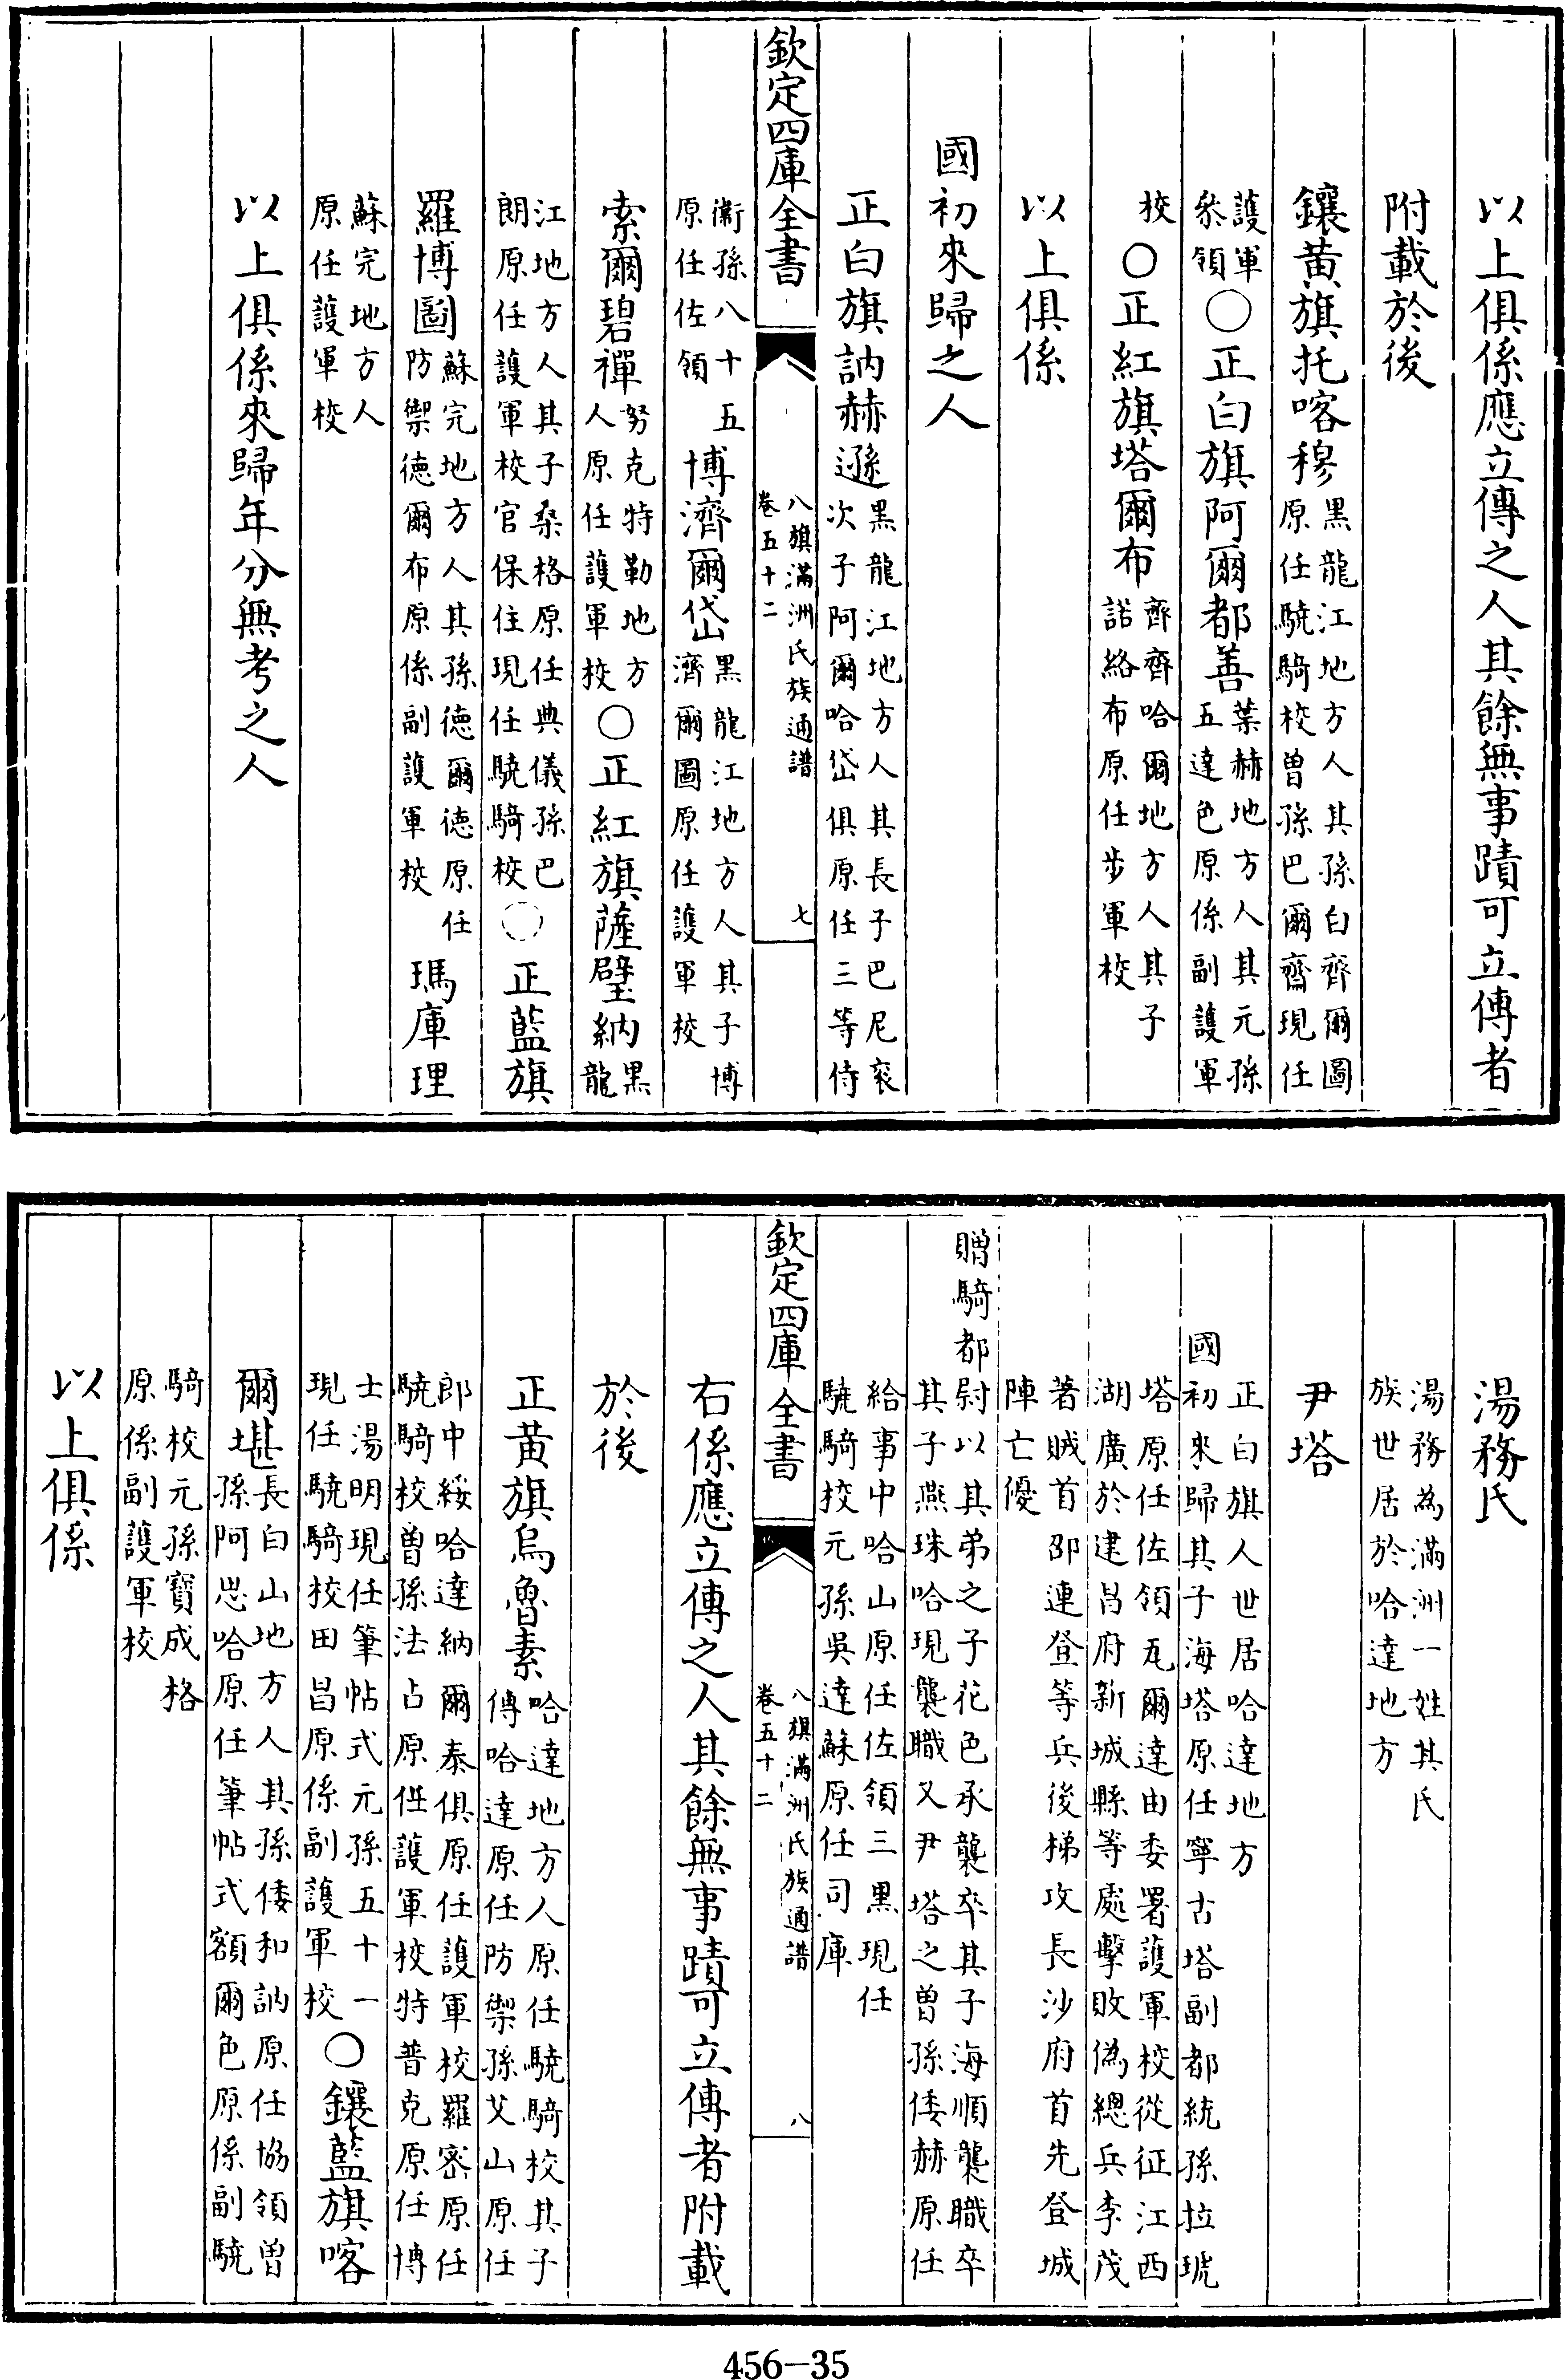 以上俱係應立傳之人其餘無事蹟可立傳者
附載於後
鑲黃旗托喀穆黑龍江地方人其孫白齊爾圖
原任驍騎校曾孫巴爾齋現任
護軍
叅領○正白旗阿爾都善葉赫地方人其元孫
五達色原係副護軍
校○正紅旗塔爾布齊齊哈爾地方人其子
諾絡布原任步軍校
以上俱係
國初來歸之人
正白旗訥赫遜黑龍江地方人其長子巴尼衮
次子阿爾哈岱俱原任三等侍
欽定四庫全書
八旗滿洲氏族通譜
卷五十二
七
衛孫八十五
原任佐領博濟爾岱黑龍江地方人其子博
濟爾圖原任護軍校
索爾碧禪努克特勒地方
人原任護軍校○正紅旗薩壁納黑
龍
江地方人其子桑格原任典儀孫巴
朗原任護軍校官保住現任驍騎校○正藍旗
羅博圖蘇完地方人其孫德爾德原任
防禦德爾布原係副護軍校瑪庫理
蘇完地方人
原任護軍校
以上俱係來歸年分無考之人
湯務氏
湯務為滿洲一姓其氏
族世居於哈達地方
尹塔
正白旗人世居哈達地方
國初來歸其子海塔原任寧古塔副都統孫拉琥
塔原任佐領瓦爾達由委署護軍校從征江西
湖廣於建昌府新城縣等處擊敗偽總兵李茂
著賊首邵連登等兵後梯攻長沙府首先登城
陣亡優
贈騎都尉以其弟之子花色承襲卒其子海順襲職卒
其子燕珠哈現襲職又尹塔之曾孫倭赫原任
給事中哈山原任佐領三黑現任
驍騎校元孫吳達蘇原任司庫
欽定四庫全書
八旗滿洲氏族通譜
卷五十二
八
右係應立傳之人其餘無事蹟可立傳者附載
於後
正黃旗烏魯素哈達地方人原任驍騎校其子
傅哈達原任防禦孫艾山原任
郎中綏哈達納爾泰俱原任護軍校羅密原任
驍騎校曾孫法占原任護軍校特普克原任博
士湯明現任筆帖式元孫五十一
現任驍騎校田昌原係副護軍校○鑲藍旗喀
爾堪長白山地方人其孫倭和訥原任協領曾
孫阿思哈原任筆帖式額爾色原係副驍
騎校元孫寶成格
原係副護軍校
以上俱係
456-35